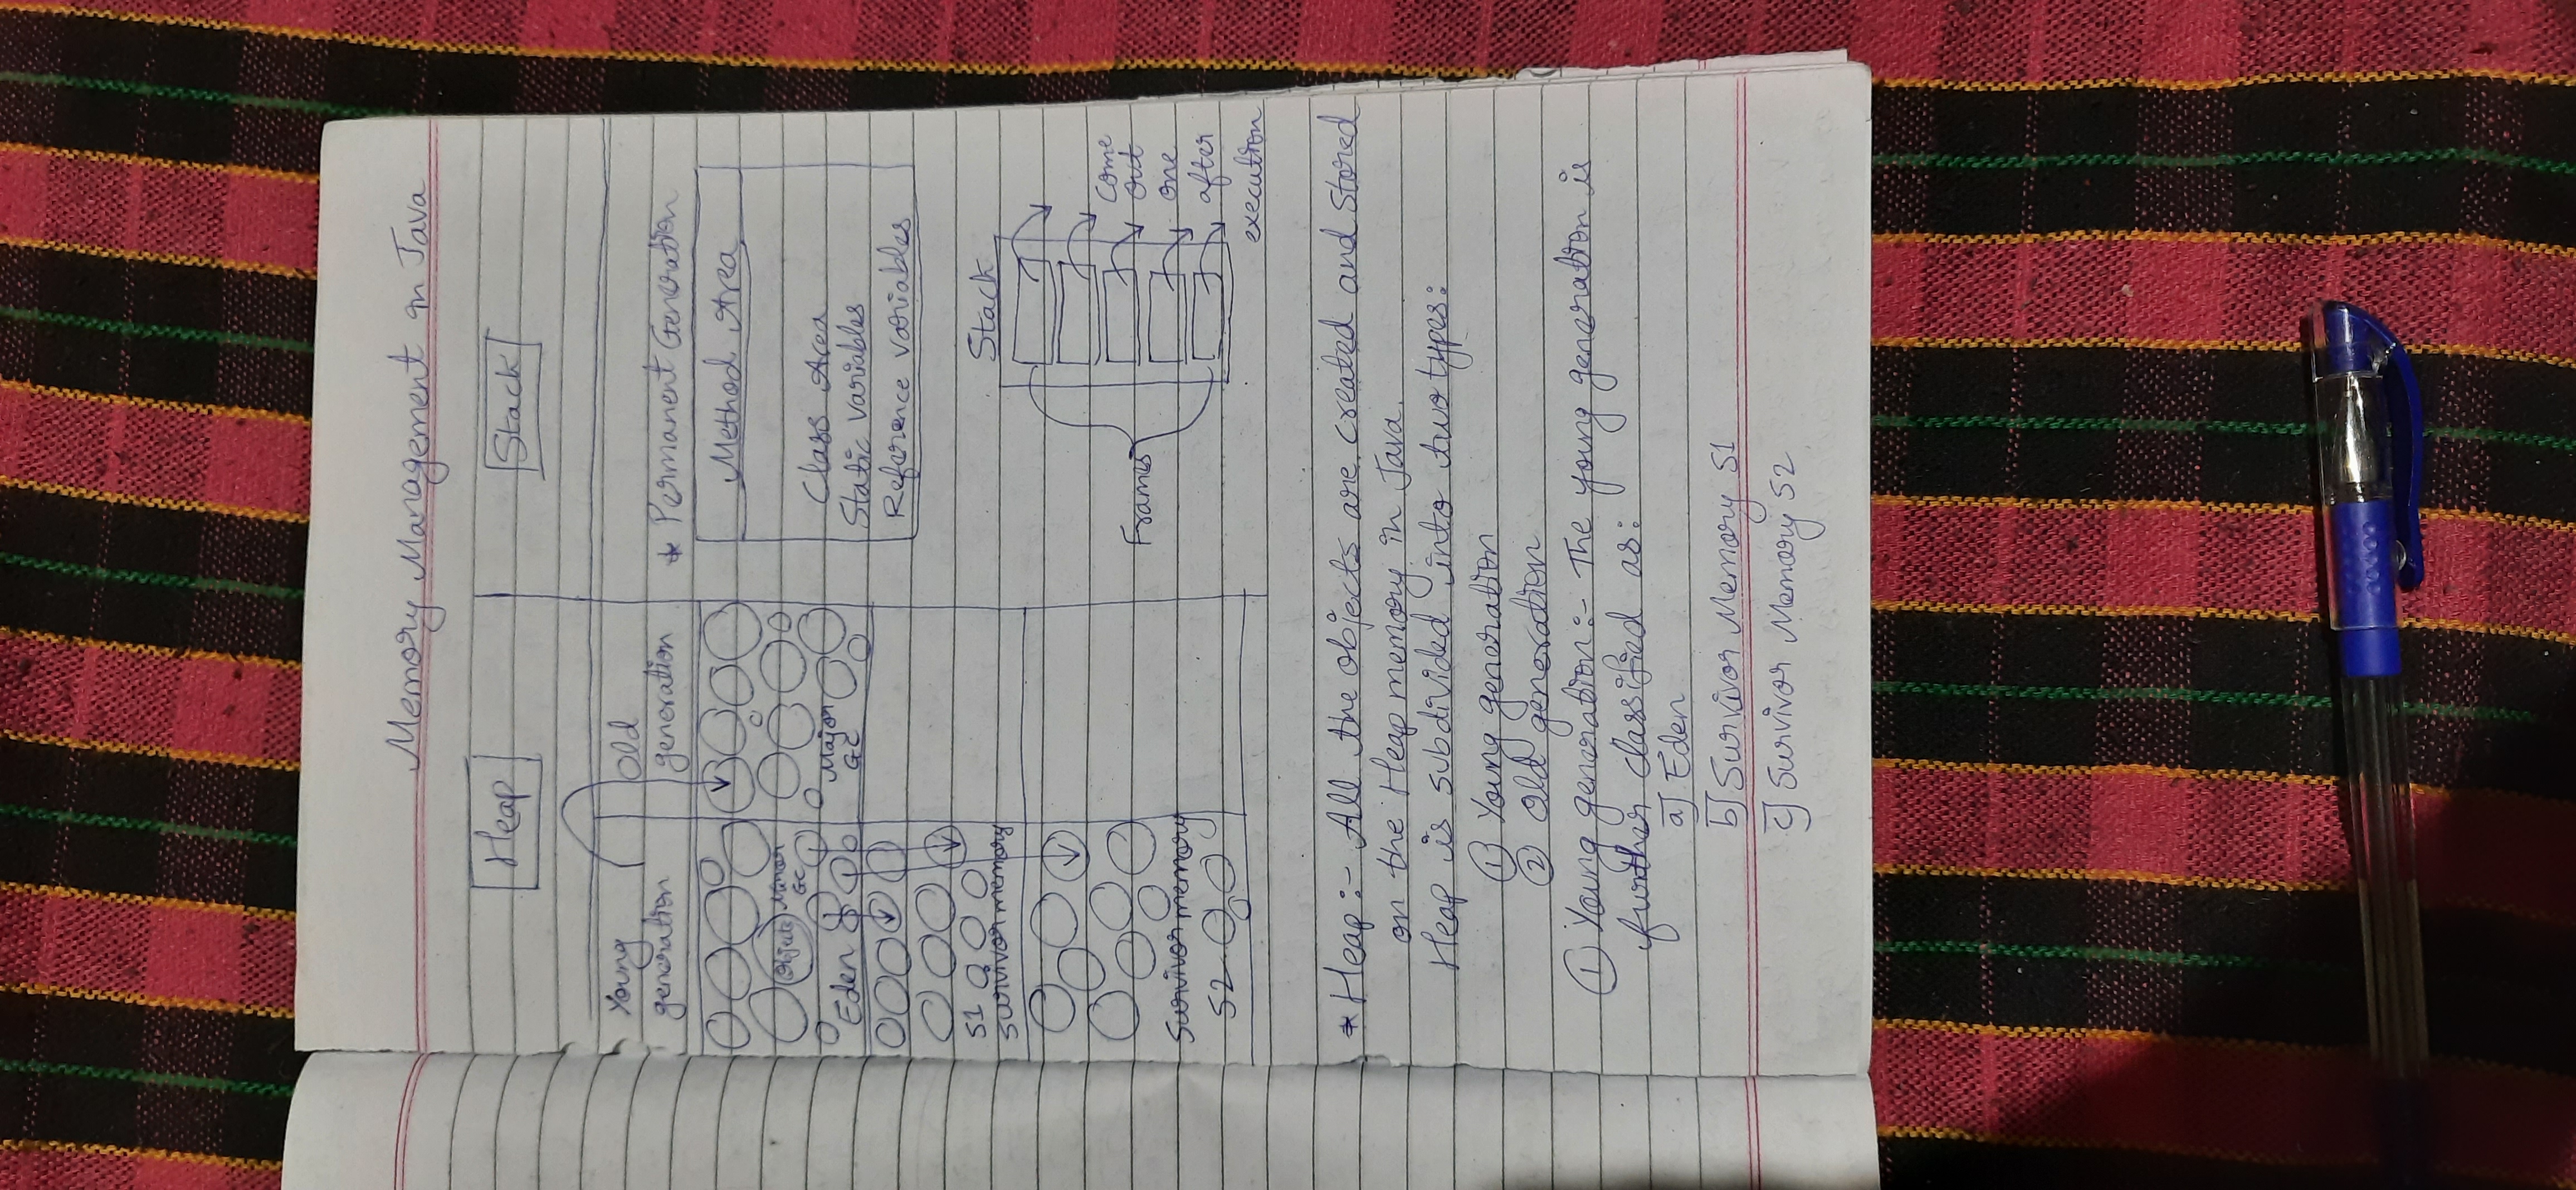 Memory Management in Java
Heap
Stack
Young
generation
Old
generation
Objects
Minor
GC
Eden
Major
GC
S1
Survivor memory
Survivor memory
S2
* Permanent Generation
Method Area
Class Area
Static variables
Reference variables
Stack
Frames
Come
out
one
after
execution
* Heap :- All the objects are created and stored
on the Heap memory in Java.
Heap is subdivided into two types:
① Young generation
② Old generation
① Young generation :- The young generation is
further classified as:
a] Eden
b] Survivor Memory S1
c] Survivor Memory S2